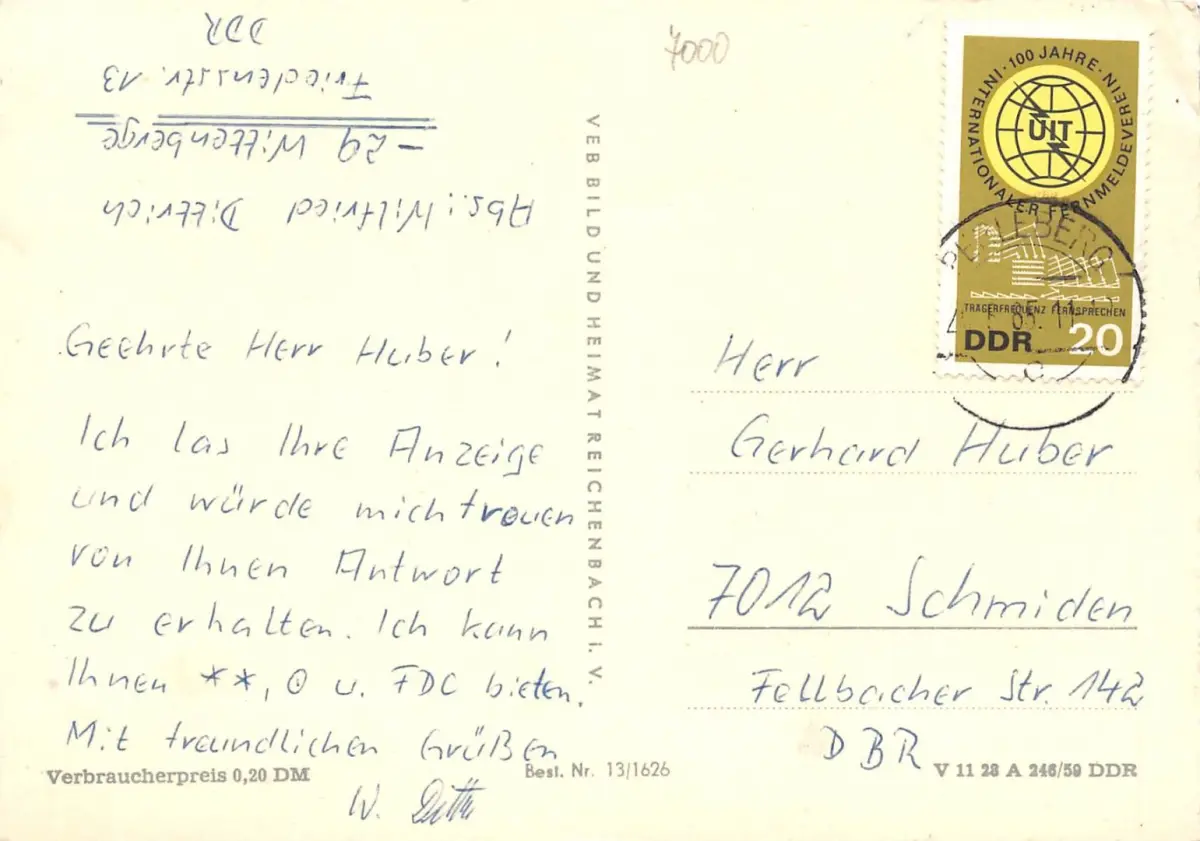 Abs.: Wilfried Dittrich
-29 Wittenberge
Friedensstr. 13
DDR
Geehrte Herr Huber!
Ich las Ihre Anzeige
und würde mich freuen
von Ihnen Antwort
zu erhalten. Ich kann
Ihnen **, ⊙ u. FDC bieten.
Mit freundlichen Grüßen
W. Ditt
Verbraucherpreis 0,20 DM
VEB BILD UND HEIMAT REICHENBACH I. V.
Best. Nr. 13/1626
7000
INTERNATIONALER FERNMELDEVEREIN · 100 JAHRE · INTERN
UIT
TRÄGERFREQUENZ FERNSPRECHEN
DDR 20
PERLEBERG 1
65.11
c
Herr
Gerhard Huber
7012 Schmiden
Fellbacher Str. 142
DBR
V 11 28 A 246/59 DDR